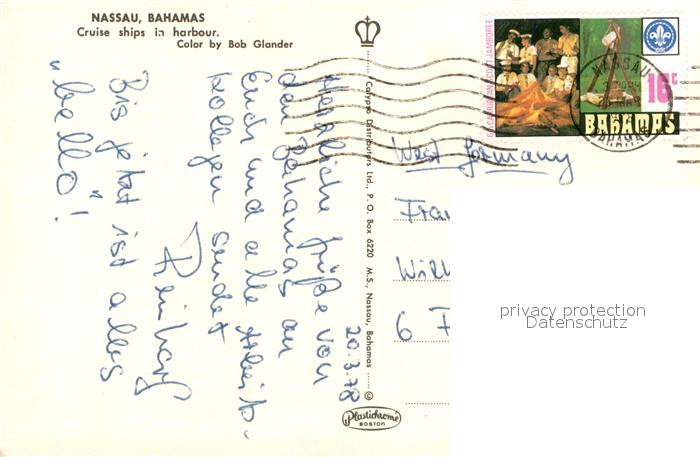 NASSAU, BAHAMAS
Cruise ships in harbour.
Color by Bob Glander
20.3.78
Herzliche Grüße von
den Bahamas an
Euch und alle Arbeits-
kollegen sendet
Reinhard
Bis jetzt ist alles
"bello"!
Calypso Distributors Ltd., P. O. Box 6220 M.S., Nassau, Bahamas ©
Plastichrome
BOSTON
CARIBBEAN SCOUT JAMBOREE
16c
BAHAMAS
NASSAU
BAHAMAS
West Germany
Frau
6 F
privacy protection
Datenschutz